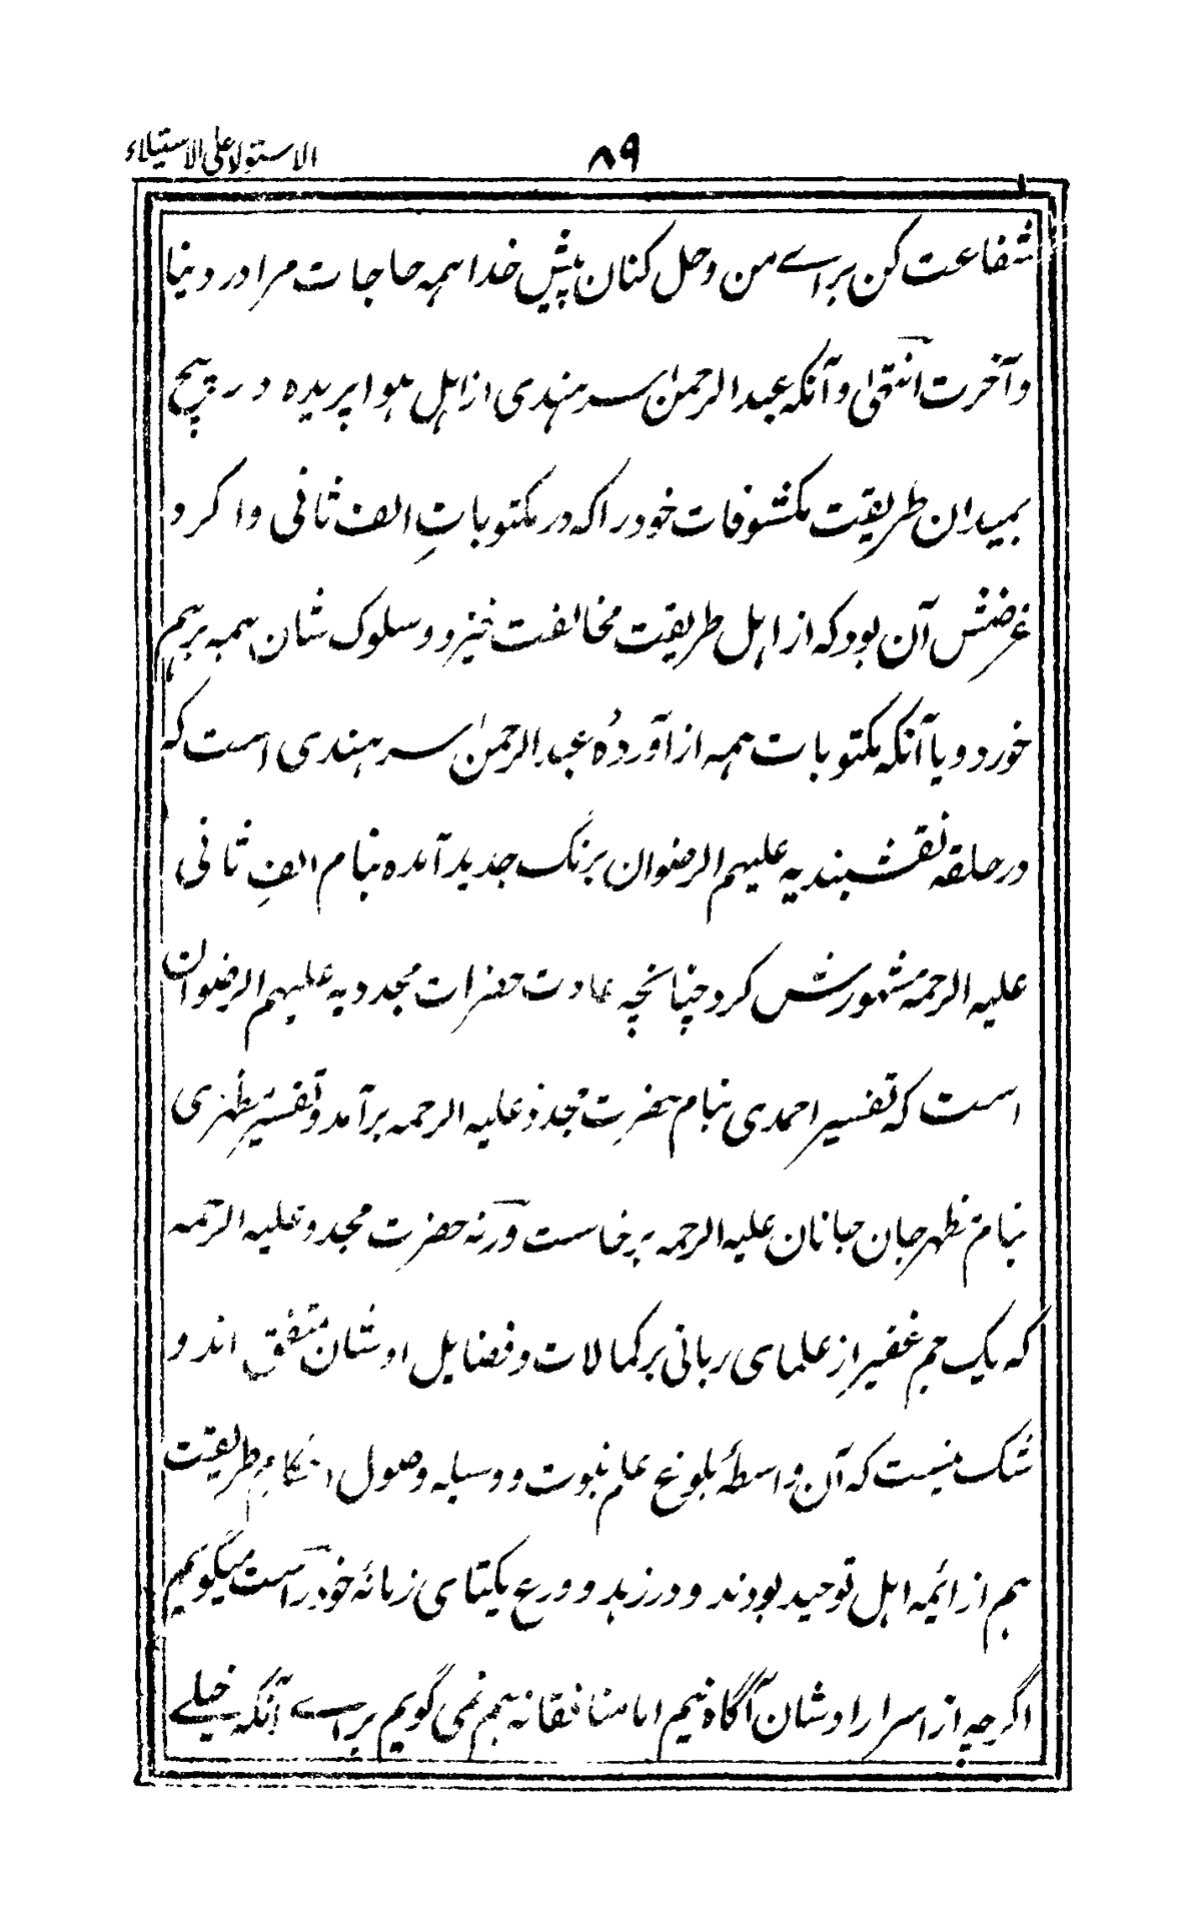 ۸۹
الاستولاء علی الاستیلاء
شفاعت کن براے من وحل کنان پیش خدا ہمہ حاجات مرا در دنیا
وآخرت انتہیٰ وآنکہ عبدالرحمٰن سرہندی از اہل ہوا پریدہ در پیچ
بمیدان طریقت مکشوفات خود را کہ در مکتوباتِ الف ثانی وا کرد
غرضش آن بود کہ از اہل طریقت مخالفت خیزد و سلوک شان ہمہ برہم
خورد و یا آنکہ مکتوبات ہمہ از آوردۂ عبدالرحمٰن سرہندی است کہ
در حلقہ نقشبندیہ علیہم الرضوان برنگ جدید آمدہ بنام الفِ ثانی
علیہ الرحمہ مشہورش کرد چنانچہ عادت حضرات مجددیہ علیہم الرضوان
است کہ تفسیر احمدی بنام حضرت مجدد علیہ الرحمہ برآمد و تفسیر مظہری
بنام مظہر جان جانان علیہ الرحمہ برخاست ورنہ حضرت مجدد علیہ الرحمہ
کہ یک جم غفیر از علمای ربانی بر کمالات و فضایل اوشان متفق اند و
شک نیست کہ آن واسطۂ بلوغ علم نبوت و وسیلہ وصول احکام طریقت
ہم از ائمہ اہل توحید بودند و در زہد و ورع یکتای زمانۂ خود راست میگویم
اگرچہ از اسرار اوشان آگاہ نیم اما منافقانہ ہم نمی گویم براے آنکہ خیلے